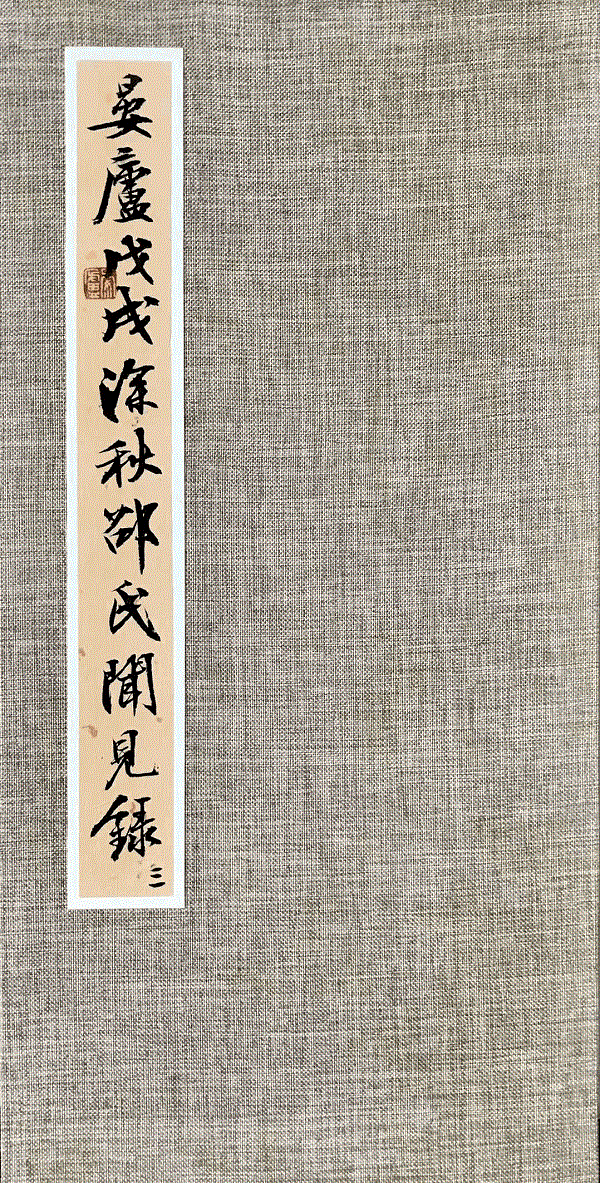 晏廬戊戌深秋邵氏聞見錄
三